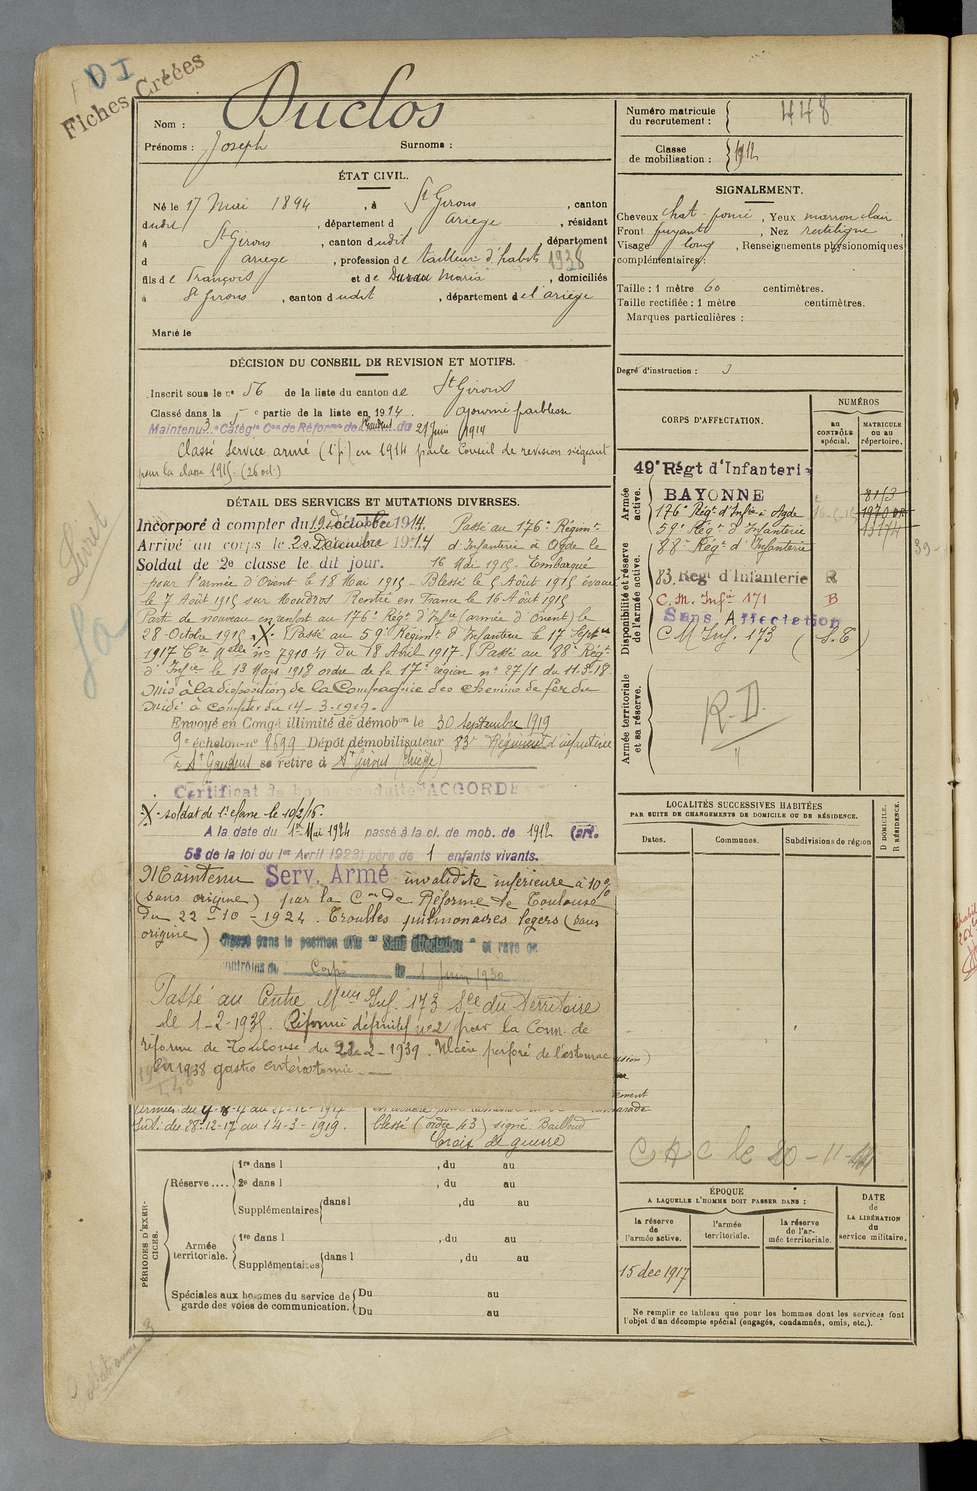 DI
Fiches Créées
Nom : Duclos
Prénoms : Joseph Surnoms :
ÉTAT CIVIL.
Né le 17 Mai 1894, à St Girons, canton
dudit, département d Ariège, résidant
à St Girons, canton dudit département
d Ariège, profession de tailleur d'habits 1938
fils de François et de Maria, domiciliés
à St Girons, canton dudit, département de l'Ariège
Marié le
DÉCISION DU CONSEIL DE REVISION ET MOTIFS.
Inscrit sous le n° 56 de la liste du canton de St Girons
Classé dans la 5e partie de la liste en 1914. ajourné faiblesse
Maintenu 3e Catégie Con de Réforme de du 21 Juin 1914
Classé Service armé (1° p) en 1914 par le Conseil de revision siégeant
pour la classe 1915. (26 oct.)
DÉTAIL DES SERVICES ET MUTATIONS DIVERSES.
Incorporé à compter du 1914. Passé au 176e Régimt
Arrivé au corps le 20 Décembre 1914 d'Infanterie à Agde le
Soldat de 2e classe le dit jour. 16 Mai 1915. Embarqué
pour l'armée d'Orient le 18 Mai 1915 - Blessé le 5 Août 1915 évacué
le 7 Août 1915 sur Moudros Rentré en France le 16 Août 1915
Parti de nouveau en renfort au 176e Régt d'Infie (armée d'Orient) le
28 Octobre 1915. X. Passé au 59e Régimt d'Infanterie le 17 Septbre
1917 Con Melle no 7910 4/1 du 18 Avril 1917. Passé au 88e Régt
d'Infie le 13 Mars 1918 ordre de la 17e région no 87/1 du 11.3.18
Mis à la disposition de la Compagnie des chemins de fer du
Midi à compter du 14-3-1919.
Envoyé en Congé illimité de démobon le 30 septembre 1919
9e échelon no 8699 Dépôt démobilisateur 83e Régiment d'infanterie
à St Gaudens se retire à St Girons (Ariège)
Certificat de bonne conduite "ACCORDÉ"
X. soldat de 1e classe le 10/2/16.
A la date du 1er Mai 1924 passé à la cl. de mob. de 1912 (art.
58 de la loi du 1er Avril 1923) père de 1 enfants vivants.
Maintenu Serv. Armé invalidité inférieure à 10%
(sans origine) par la Con de Réforme de Toulouse
du 22-10-1924. Troubles pulmonaires légers (sans
origine)
Classé dans la position dite "Sans affectation" et rayé des
contrôles du Corps le 1 Juin 1930
Passé au Centre Meur Inf. 173 Sce du Territoire
le 1-2-1935. Réformé définitif no 2 par la Comn. de
réforme de Toulouse du 22-2-1939. Ulcère perforé de l'estomac
en 1938 gastro entérostomie.
Int. du 28-12-17 au 14-3-1919. blessé (ordre 43) signé Bailloud
Croix de guerre
PÉRIODES D'EXERCICES.
Réserve.... 1re dans l , du au
2e dans l , du au
Supplémentaires dans l , du au
Armée territoriale. 1re dans l , du au
Supplémentaires dans l , du au
Spéciales aux hommes du service de garde des voies de communication. Du au
Du au
Numéro matricule du recrutement : 448
Classe de mobilisation : 1912
SIGNALEMENT.
Cheveux chat. foncé, Yeux marron clair
Front fuyant, Nez rectiligne,
Visage long, Renseignements physionomiques
complémentaires :
Taille : 1 mètre 60 centimètres.
Taille rectifiée : 1 mètre centimètres.
Marques particulières :
Degré d'instruction : 3
CORPS D'AFFECTATION.
NUMÉROS
au CONTRÔLE spécial.
MATRICULE ou au répertoire.
Armée active.
49e Régt d'Infanterie
BAYONNE 8113
176e Régt d'Infie à Agde
59e Régt d'Infanterie 13174
Disponibilité et réserve de l'armée active.
88e Régt d'Infanterie
83. Régt d'Infanterie R
C.M. Infie 171 B
Sans Affectation
C M Inf. 173 (S.T)
Armée territoriale et sa réserve.
R.D.
LOCALITÉS SUCCESSIVES HABITÉES
PAR SUITE DE CHANGEMENTS DE DOMICILE OU DE RÉSIDENCE.
Dates. Communes. Subdivisions de région
D DOMICILE. R RÉSIDENCE.
ÉPOQUE
A LAQUELLE L'HOMME DOIT PASSER DANS :
DATE de LA LIBÉRATION du service militaire.
la réserve de l'armée active.
l'armée territoriale.
la réserve de l'armée territoriale.
15 dec 1917
Ne remplir ce tableau que pour les hommes dont les services font
l'objet d'un décompte spécial (engagés, condamnés, omis, etc.).